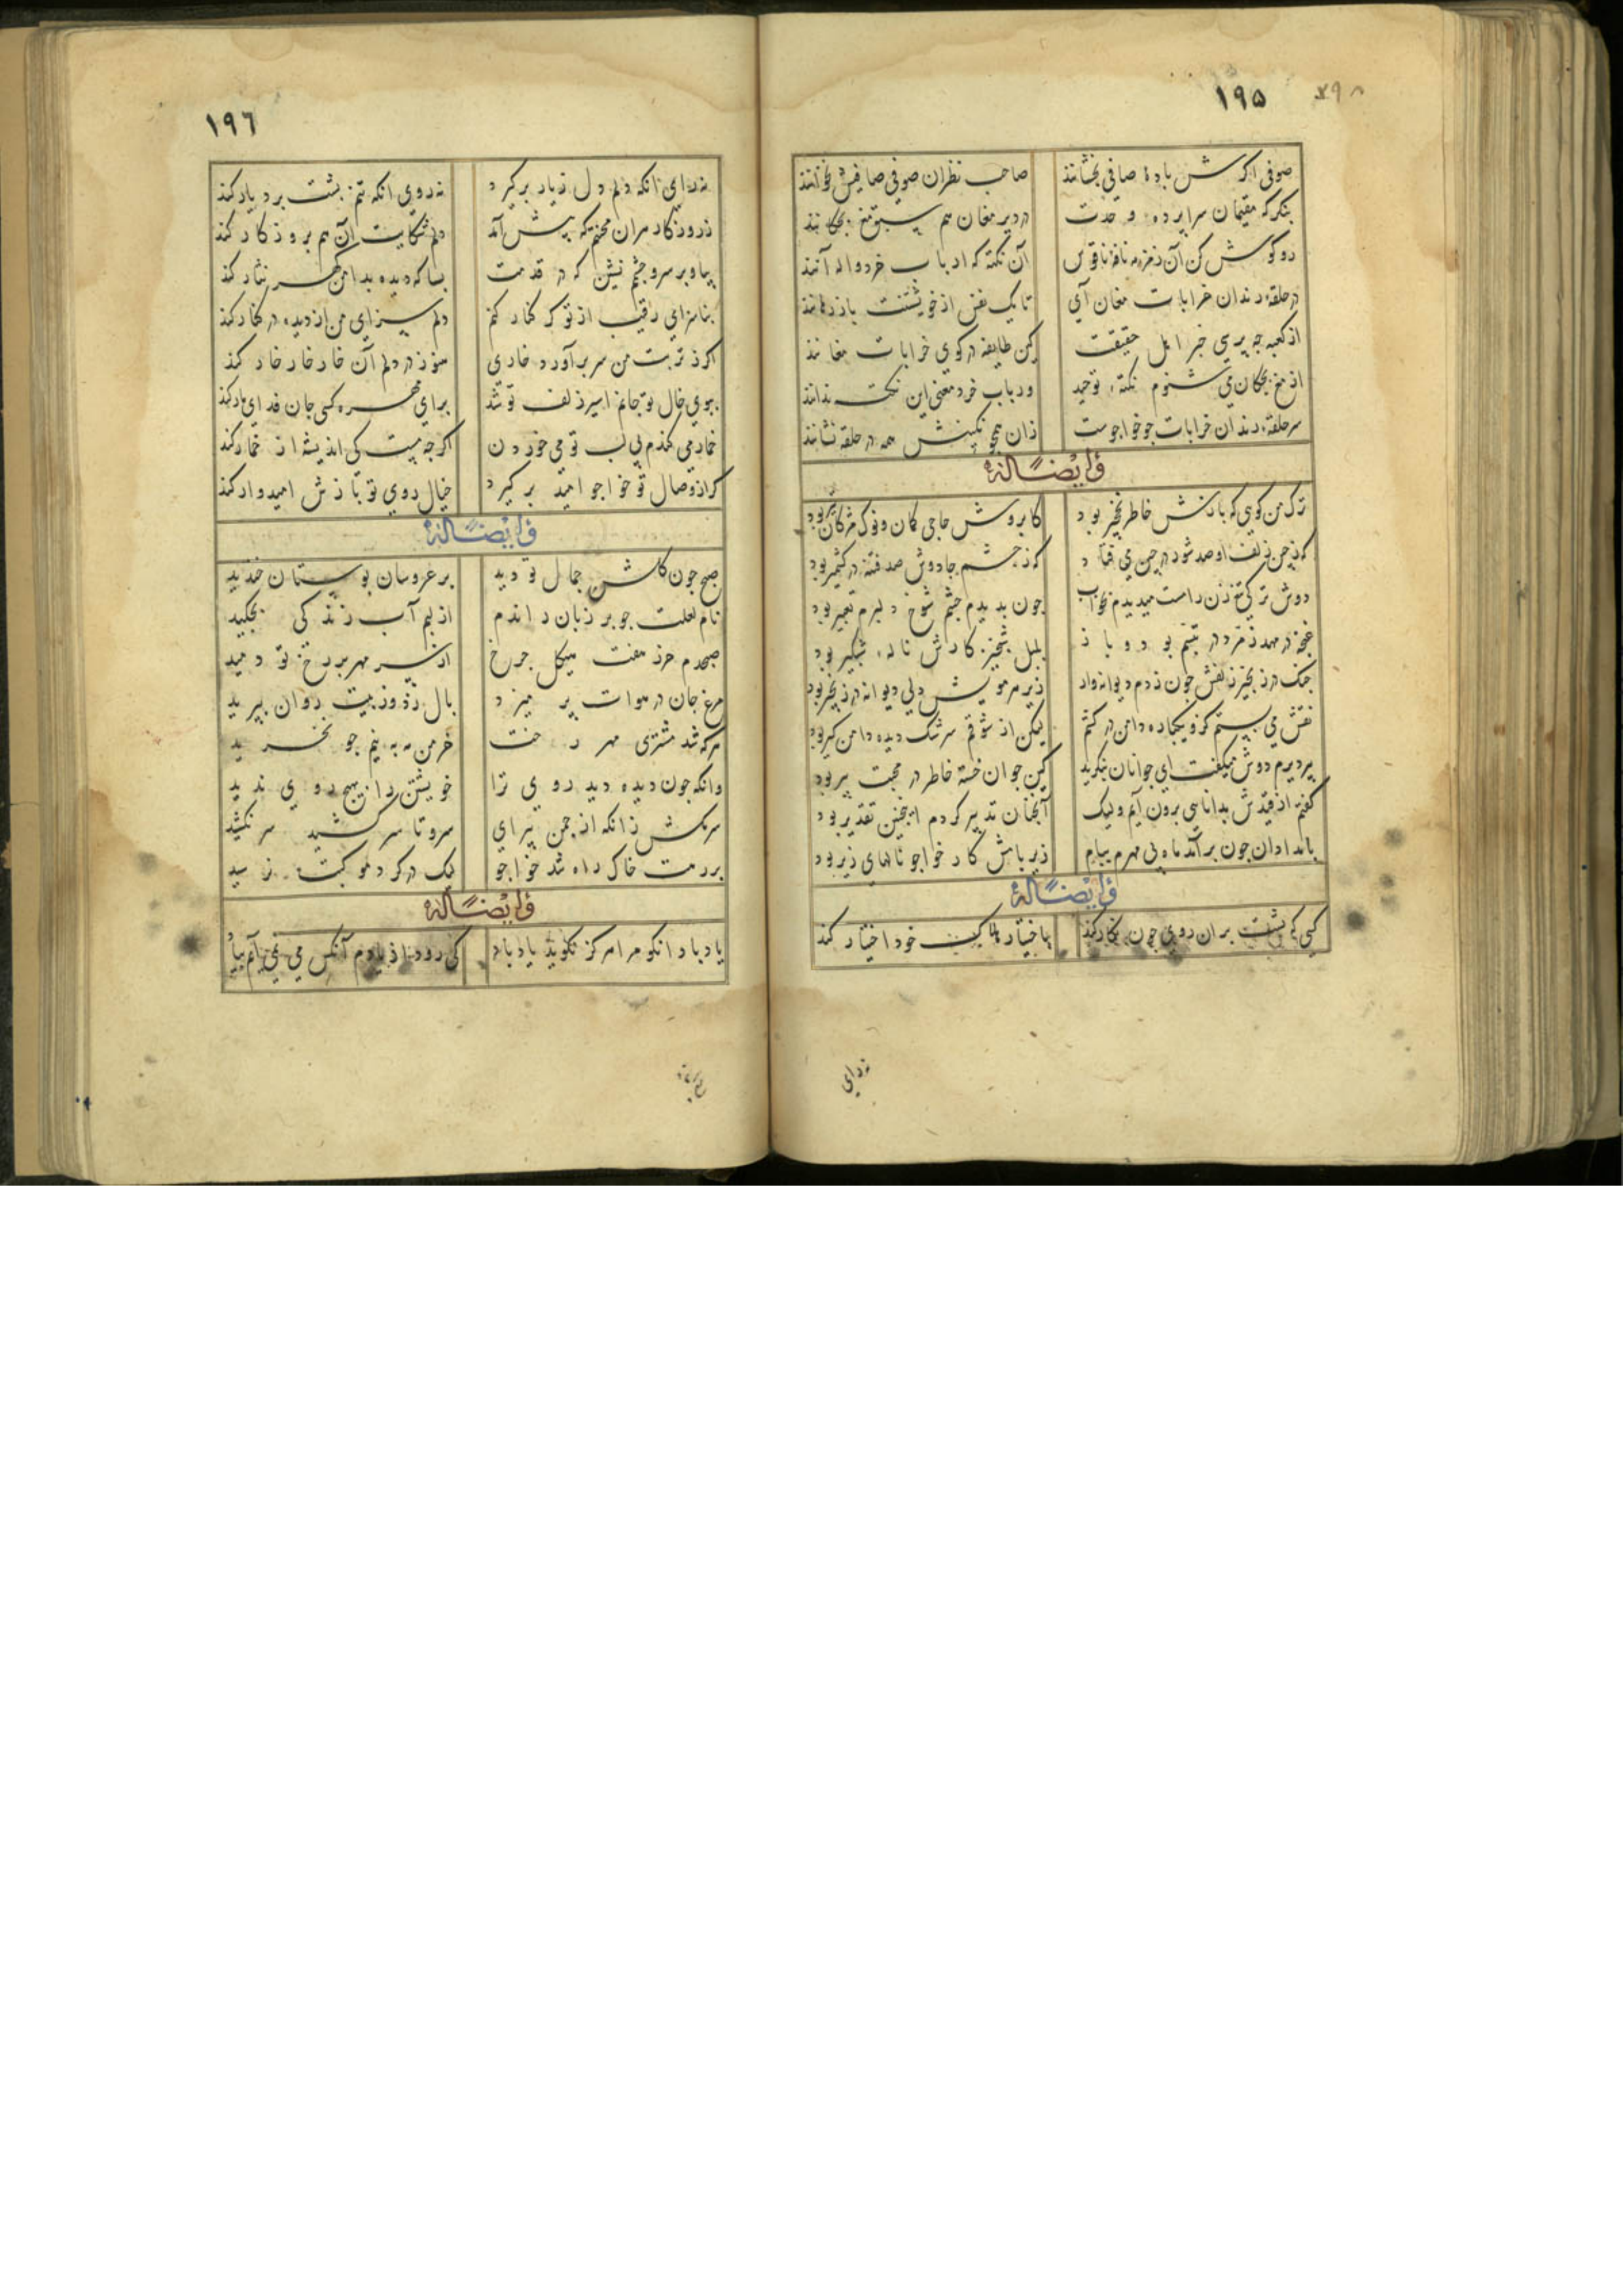 ۱۹۵
صوفی اکرش بادهٔ صافی بچشانند صاحب نظران صوفی صافیش نخوانند
بنکر که مقیمان سراپرده وحدت در دیر مغان هم سبق مغ بچکانند
رو کوش کن آن زمزمه ناقوس آن نکته که ارباب خرد واله آنند
در حلقهٔ رندان خرابات مغان آی تا یک نفس از خویشتنت باز رهانند
از کعبه جه پرسی خبر اهل حقیقت کین طایفه در کوی خرابات مغانند
از مغ بچکان می شنوم نکتهٔ توحید و ارباب خرد معنی این نکته ندانند
سر حلقهٔ رندان خرابات جو خواجوست زان همجو نکینش همه در حلقه نشانند
و ایضاً له
ترک من کویی که بازش خاطر نخجیر بود کابروش جاجی کمان و نوک مژکان تیر بود
که ز جین زلف او صد شور در جین می فتاد که ز جشم جادوش صد فتنه در کشمیر بود
دوش ترکی تیغ زن را مست میدیدم بخواب جون بدیدم جشم شوخ دلبرم تعبیر بود
غنجه در مهد زمرد در تبسم بود و باز بلبل شبخیز کارش ناله شبکیر بود
جنک در زنجیر زلفش جون زدم دیوانه وار زیر هر مویش دلی دیوانه در زنجیر بود
نقش می بستم کزو یکباره دامن در کشم لیکن از شوقم سرشک دیده دامن کیر بود
پیر دیرم دوش میکفت ای جوانان بنکرید کین جوان خسته خاطر در محبت پیر بود
کفتم از قیدش بدانایی برون آیم ولیک آنجنان تدبیر کردم اینجنین تقدیر بود
بامدادان جون برآمد ماه بی مهرم ببام زیر بامش کار خواجو نالهای زیر بود
و ایضاً له
کسی که پشت بران روی جون نکار کند باختیار هلاک خود اختیار کند
نه رای
۱۹٦
نه رای انکه دلم دل ز یار برکیرد نه روی انکه تنم پشت بر دیار کند
ز روزکار مرا این محنتم که پیش آمد دلم شکایت آن هم بروزکار کند
بیا و بر سر و جشمم نشین که در قدمت بسا که دیده بدامن کهر نثار کند
بناسزای رقیب از تو کر کنار کنم دلم سزای من از دیده در کنار کند
اکر ز تربت من سر برآورد خاری هنوز در دلم آن خار خار خار کند
ببوی خال تو جانم اسیر زلف تو شد برای مهره کسی جان فدای مار کند
خمار می کشدم بی لب تو می خوردن اکر جه مست کی اندیشه از خمار کند
کر از وصال تو خواجو امید برکیرد خیال روی تو بازش امیدوار کند
و ایضاً له
صبح جون کلشن جمال تو دید بر عروسان بوستان خندید
نام لعلت جو بر زبان راندم از لبم آب زندکی بجکید
صبحدم حرز هفت هیکل جرخ از سر مهر بر رخ تو دمید
مرغ جان در هوات پر میزد بال زد وز پیت روان بپرید
هر که شد مشتری مهر رخت خرمن مه به نیم جو نخرید
وانکه جون دیده دید روی ترا خویشتن را بهیج روی ندید
سرمکش زانکه از جمن پیرای سرو تا سر کشید سر نکشید
بر رهت خاک راه شد خواجو لیک در کرد موکبت نرسید
و ایضاً له
یاد باد انکو مرا هرکز نکوید یاد باد کی رود از یادم آنکس